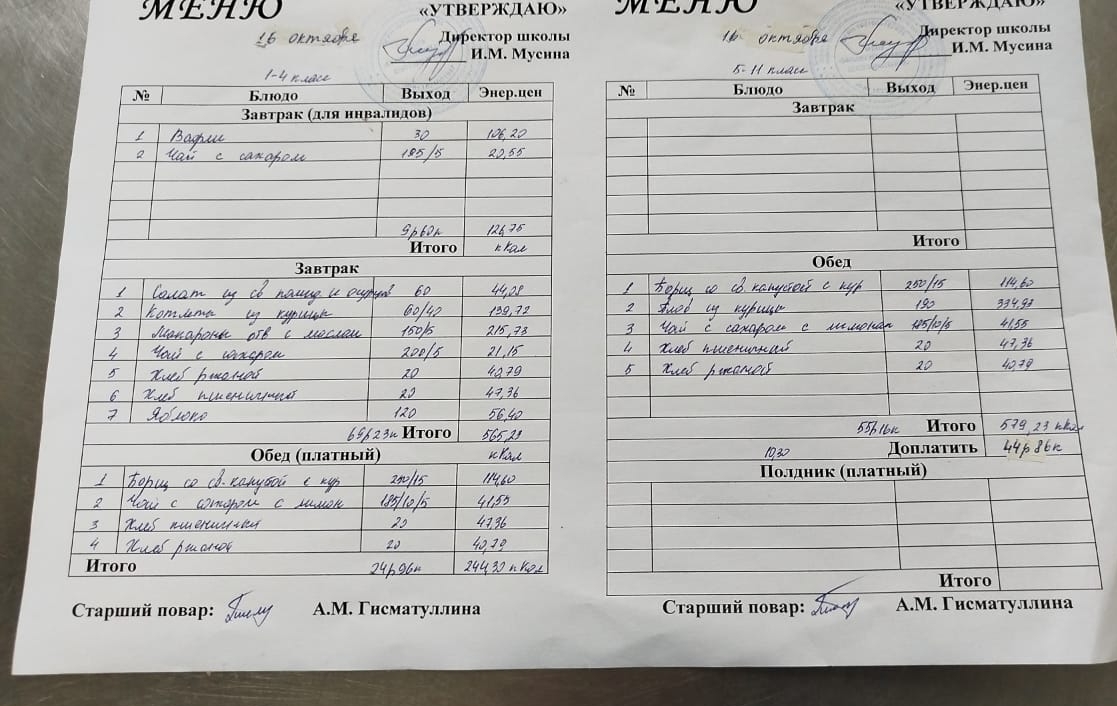 МЕНЮ
«УТВЕРЖДАЮ»
16 октября
Директор школы
И.М. Мусина
1-4 класс
№ Блюдо Выход Энер.цен
Завтрак (для инвалидов)
1 Вафли 30 106,20
2 Чай с сахаром 185/5 20,55
9р60к 126,75
Итого кКал
Завтрак
1 Салат из св помид и огурцов 60 44,08
2 Котлеты из курицы 60/40 139,72
3 Макароны отв с маслом 150/5 215,73
4 Чай с сахаром 200/5 21,15
5 Хлеб ржаной 20 40,79
6 Хлеб пшеничный 20 47,36
7 Яблоко 120 56,40
69р23к Итого 565,23
Обед (платный) кКал
1 Борщ со св. капустой с кур 250/15 114,60
2 Чай с сахаром с лимон 185/10/5 41,55
3 Хлеб пшеничный 20 47,36
4 Хлеб ржаной 20 40,79
Итого 24р96к 244,30 кКал
Старший повар: А.М. Гисматуллина
МЕНЮ
«УТВЕРЖДАЮ»
16 октября
Директор школы
И.М. Мусина
5-11 класс
№ Блюдо Выход Энер.цен
Завтрак
Итого
Обед
1 Борщ со св. капустой с кур 250/15 114,60
2 Плов из курицы 190 334,93
3 Чай с сахаром с лимоном 185/10/5 41,55
4 Хлеб пшеничный 20 47,36
5 Хлеб ржаной 20 40,79
55р16к Итого 579,23 кКал
10,30 Доплатить 44р86к
Полдник (платный)
Итого
Старший повар: А.М. Гисматуллина